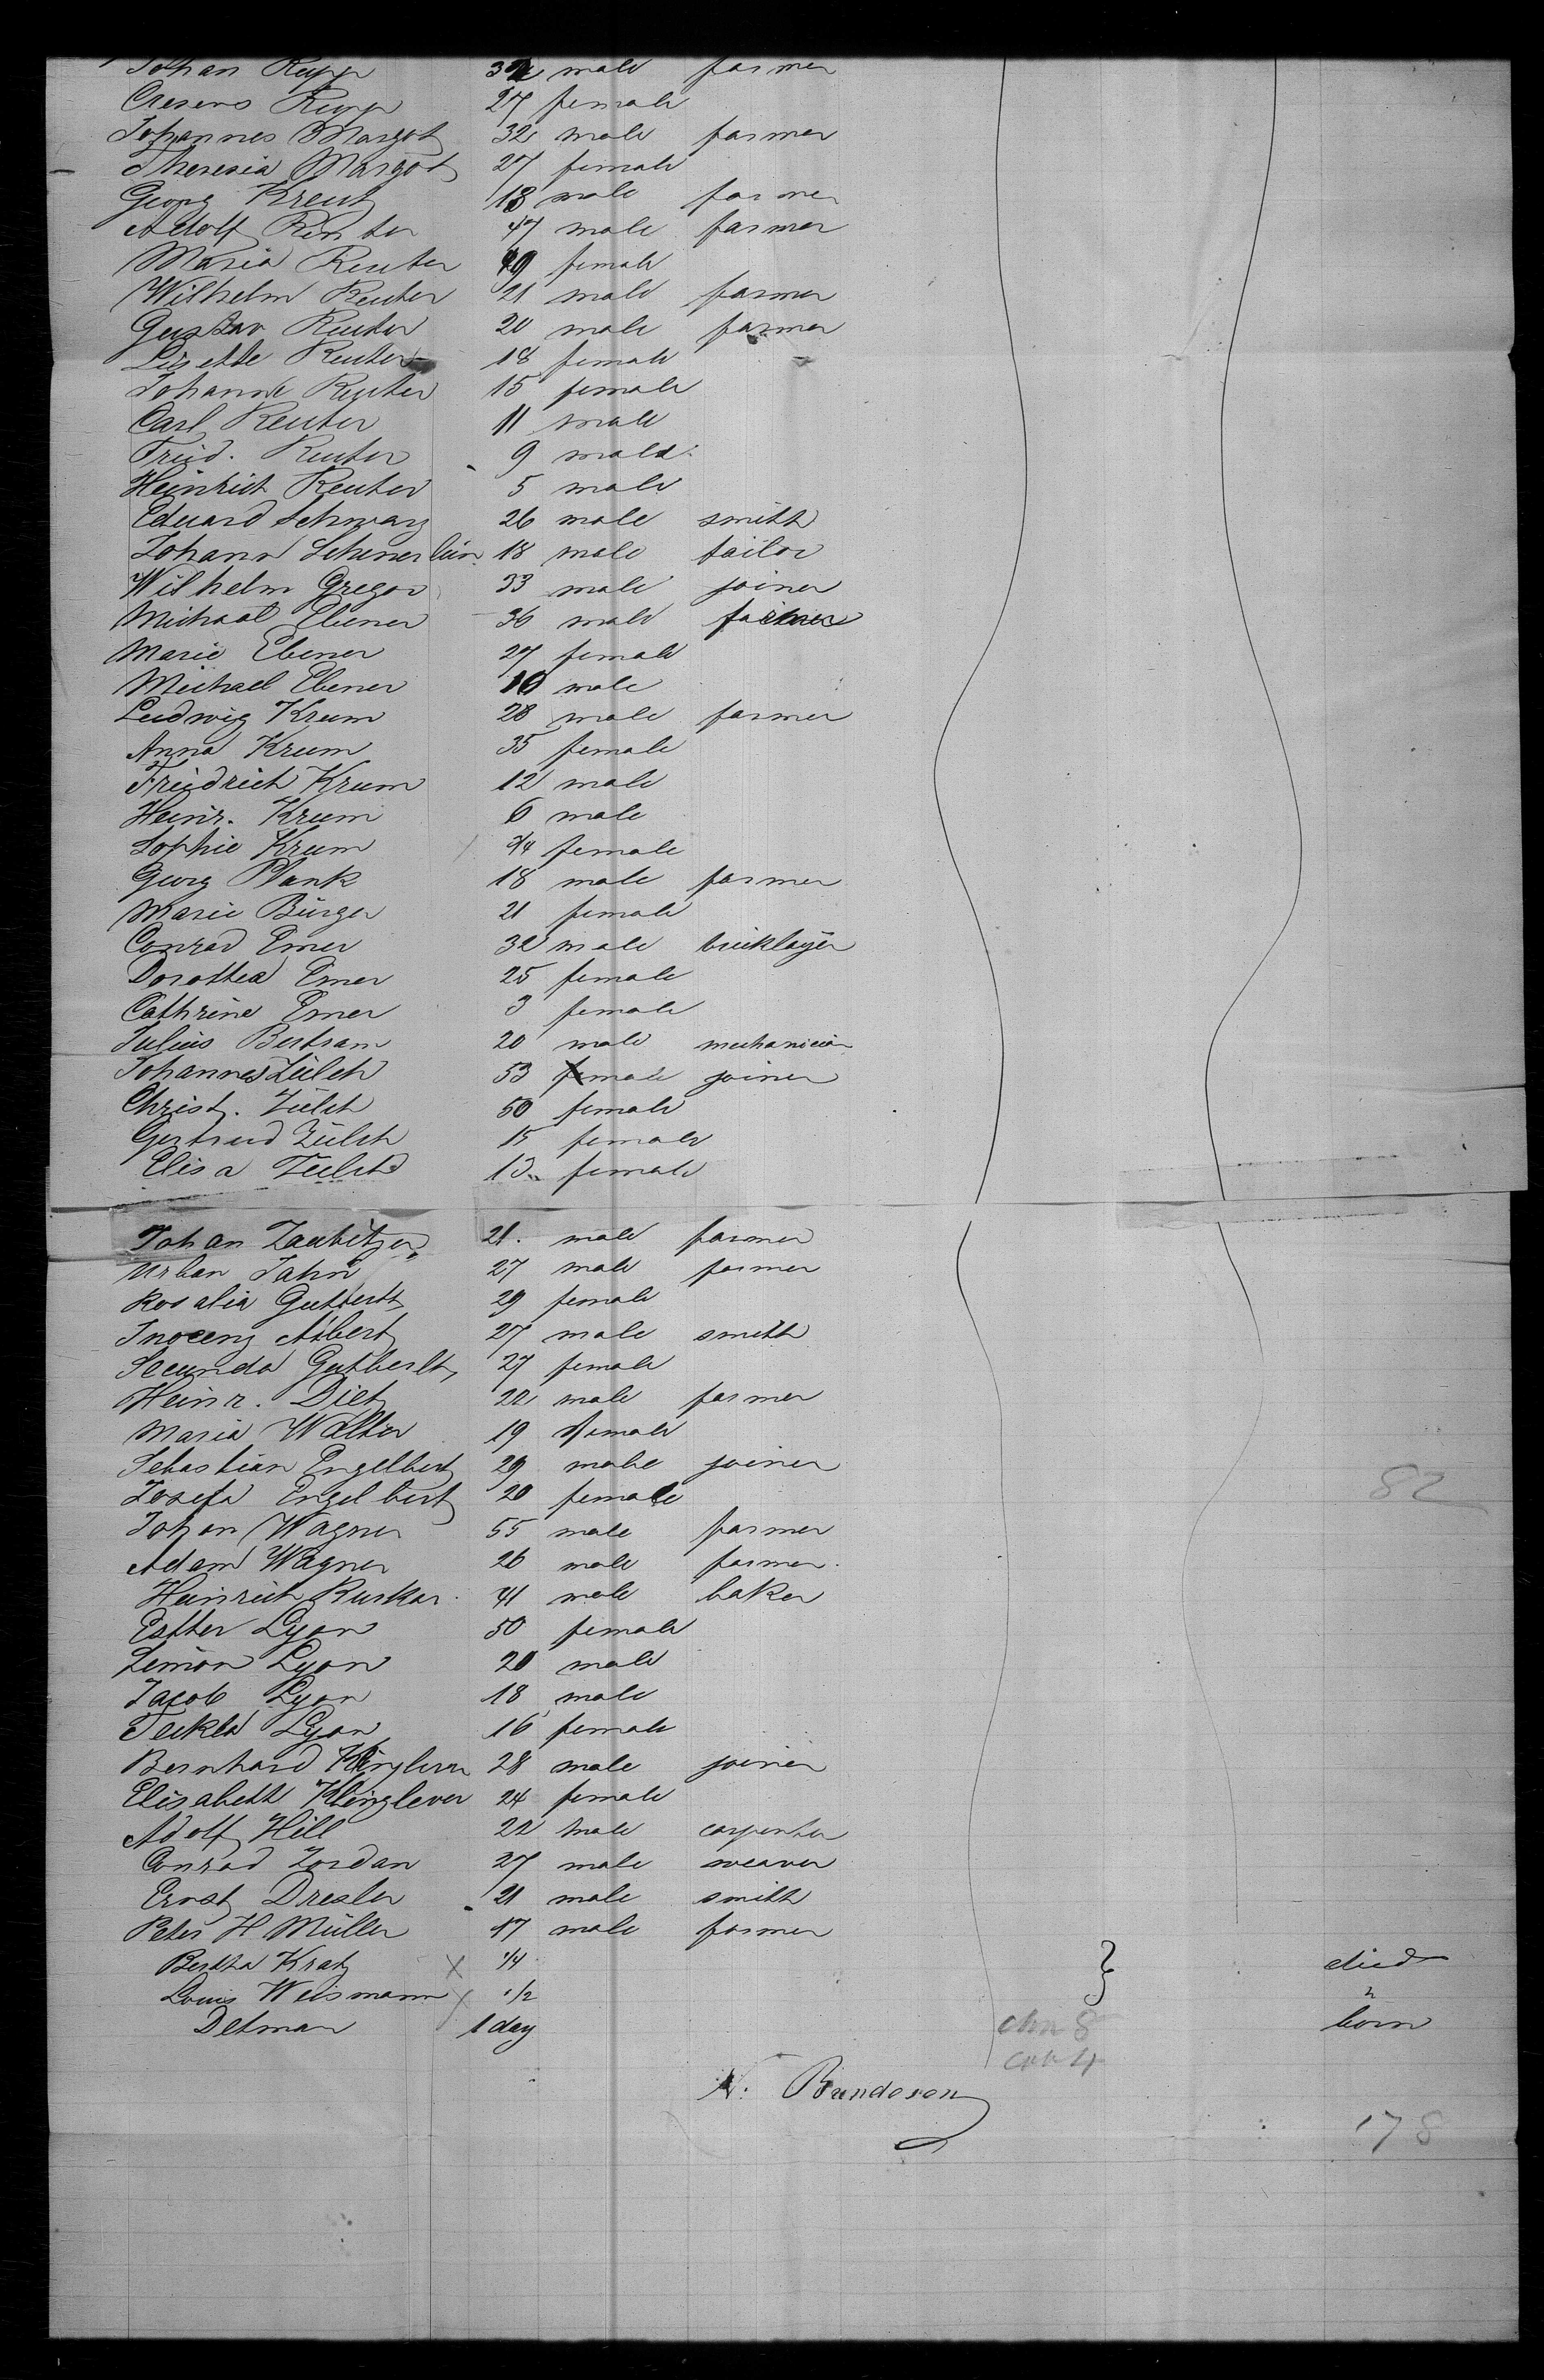 Johan Rupp 32 male farmer
Cresens Rupp 27 female
Johannes Margot 32 male farmer
Theresia Margot 27 female
Georg Kreutz 18 male farmer
Adolf Reuter 47 male farmer
Maria Reuter 49 female
Wilhelm Reuter 21 male farmer
Gustav Reuter 20 male farmer
Lisette Reuter 18 female
Johanne Reuter 15 female
Carl Reuter 11 male
Fried. Reuter 9 male
Heinrich Reuter 5 male
Eduard Schwarz 26 male smith
Johann Scheuerlein 18 male tailor
Wilhelm Gregor 33 male joiner
Michael Ebener 36 male farmer
Marie Ebener 27 female
Michael Ebener 10 male
Ludwig Krum 28 male farmer
Anna Krum 35 female
Friedrich Krum 12 male
Heinr. Krum 6 male
Sophie Krum 3/4 female
Georg Plank 18 male farmer
Marie Bürger 21 female
Conrad Emer 32 male bricklayer
Dorothea Emer 25 female
Cathrine Emer 3 female
Julius Bertram 20 male mechanician
Johannes Zülch 53 male joiner
Christ. Zülch 50 female
Gertrud Zülch 15 female
Elisa Zülch 13 female
Johan Zaubitzer 21. male farmer
Urban Jahn 27 male farmer
Rosalia Gutberlt 29 female
Inocenz Albert 27 male smith
Secunda Gutberlt 27 female
Heinr. Dietz 22 male farmer
Maria Walter 19 female
Sebastian Engelbert 29 male joiner
Josefa Engelbert 20 female
82
Johan Wagner 55 male farmer
Adam Wagner 26 male farmer
Heinrich Ruskar 41 male baker
Esther Lyon 50 female
Simon Lyon 20 male
Jacob Lyon 18 male
Teckla Lyon 16 female
Bernhard Klinglever 28 male joiner
Elisabeth Klinglever 24 female
Adolf Hill 22 male carpenter
Conrad Jordan 27 male weaver
Ernst Dresler 21 male smith
Peter H Müller 17 male farmer
Bertha Kratz X 1/4 } died
Louis Weismann X 1/2 "
Detman 1 day born
N. Bandoson
178